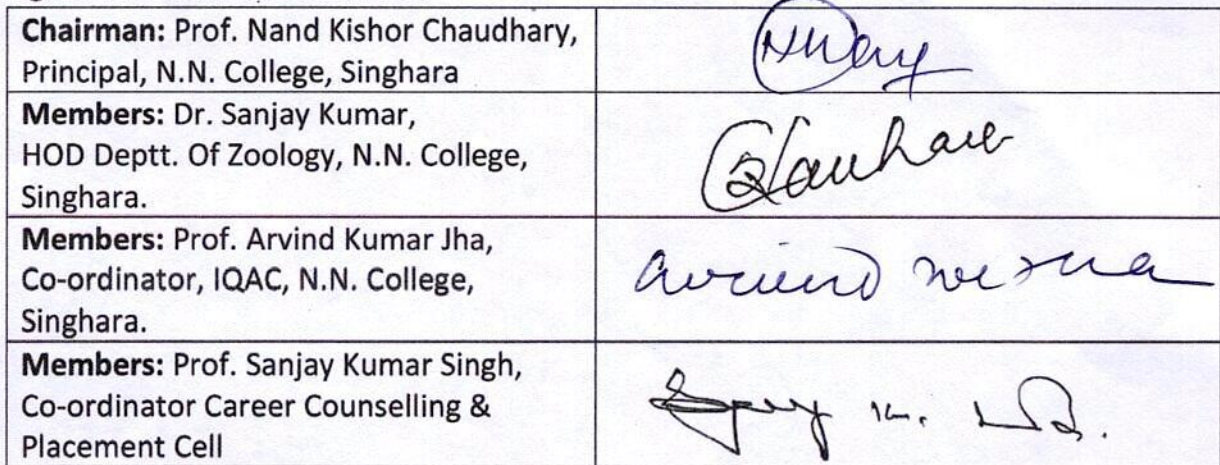 Chairman: Prof. Nand Kishor Chaudhary,
Principal, N.N. College, Singhara
Members: Dr. Sanjay Kumar,
HOD Deptt. Of Zoology, N.N. College,
Singhara.
Members: Prof. Arvind Kumar Jha,
Co-ordinator, IQAC, N.N. College,
Singhara.
Members: Prof. Sanjay Kumar Singh,
Co-ordinator Career Counselling &
Placement Cell